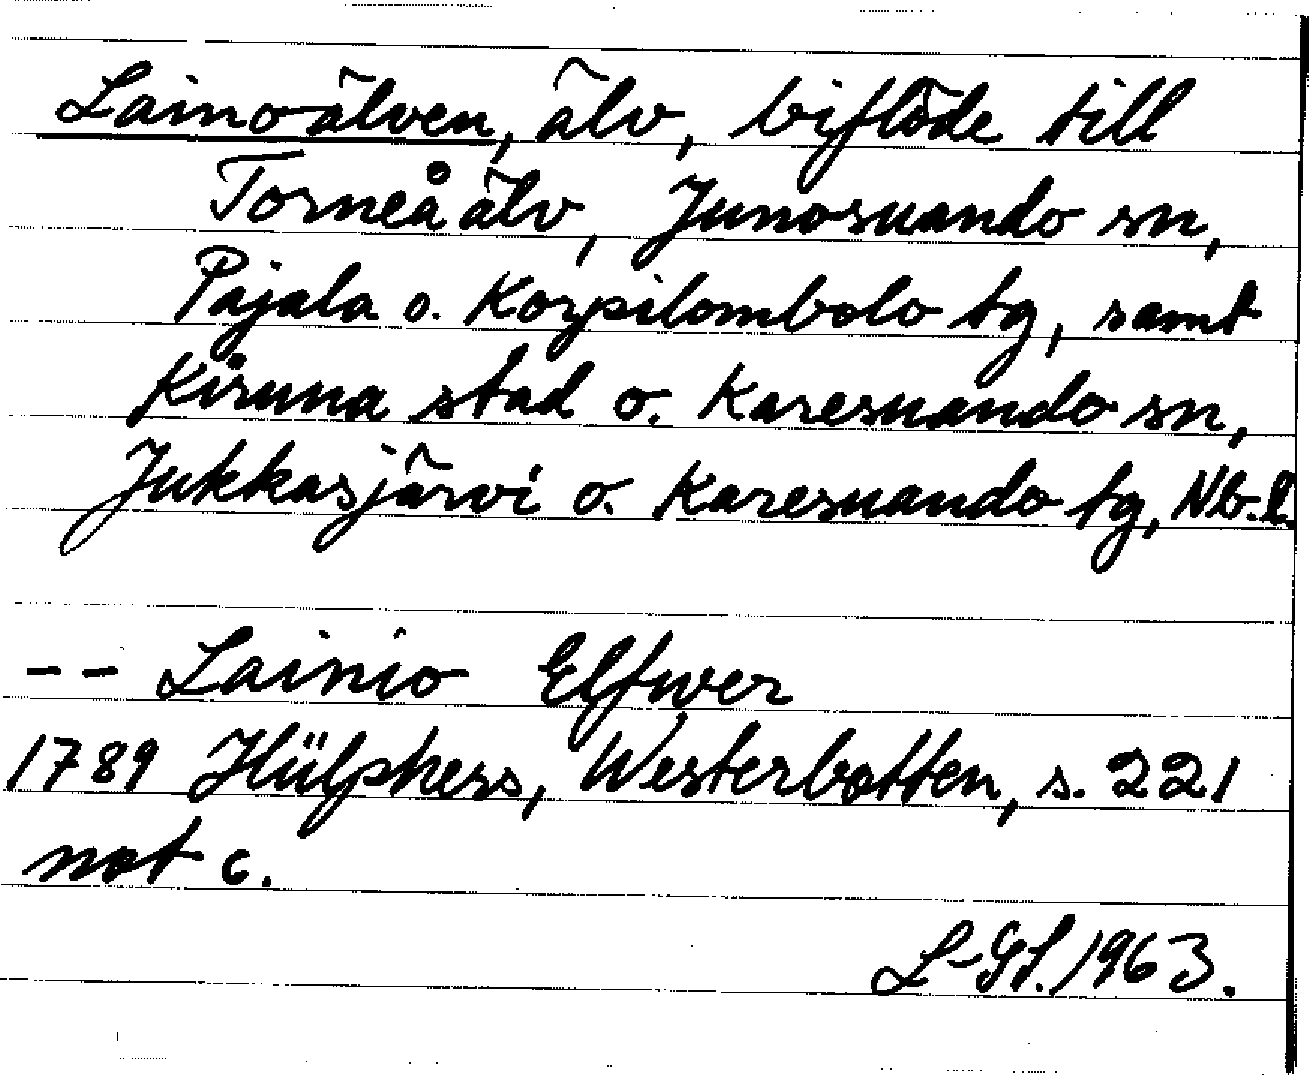 Lainoälven, älv, biflöde till
Torneå älv, Junosuando sn,
Pajala o. Korpilombolo tg, samt
Kiruna stad o. Karesuando sn,
Jukkasjärvi o. Karesuando tg, Nb. l.
-- Lainio Elfwer
1789 Hülphers, Westerbotten, s. 221
not c.
L-GL. 1963.